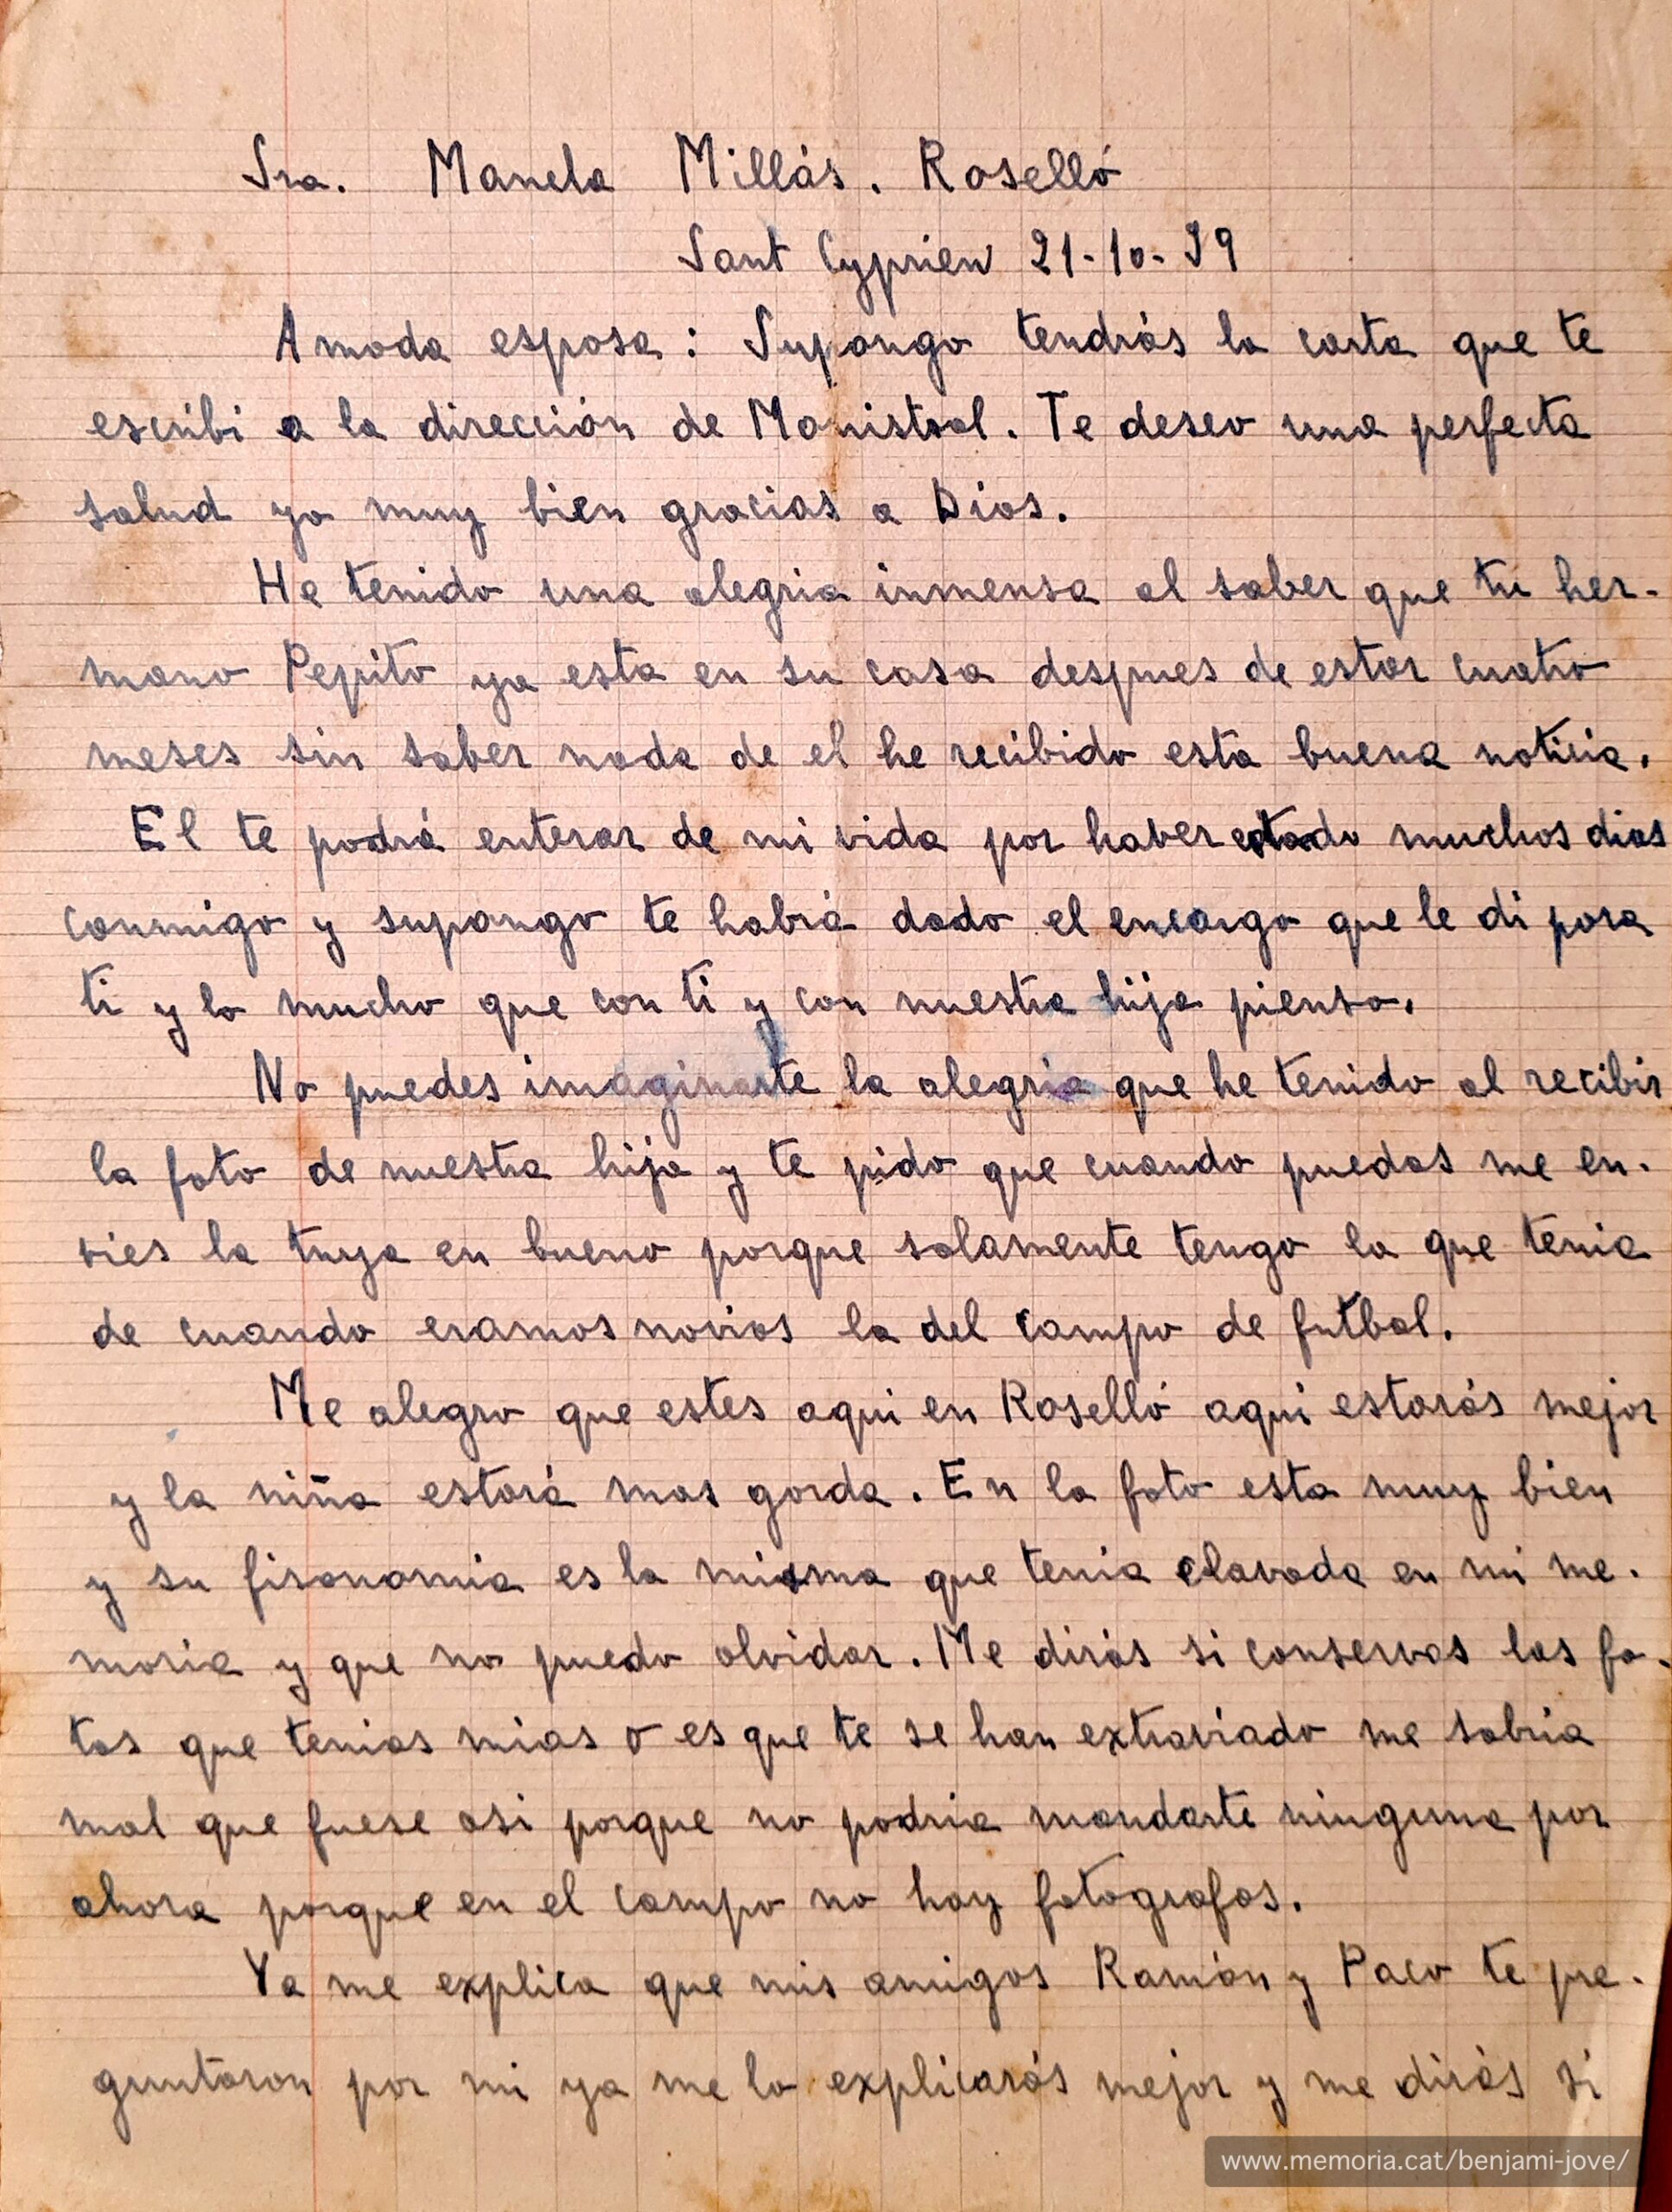 Sra. Manela Millás. Roselló
Sant Cyprien 21-10-39
Amada esposa: Supongo tendrás la carta que te
escribi a la dirección de Monistrol. Te deseo una perfecta
salud yo muy bien gracias a Dios.
He tenido una alegria inmensa al saber que tu her-
mano Pepito ya esta en su casa despues de estar cuatro
meses sin saber nada de el he recibido esta buena noticia.
El te podrá enterar de mi vida por haber estado muchos dias
conmigo y supongo te habrá dado el encargo que le di para
ti y lo mucho que con ti y con nuestra hija pienso.
No puedes imaginarte la alegria que he tenido al recibir
la foto de nuestra hija y te pido que cuando puedas me en-
vies la tuya en bueno porque solamente tengo la que tenia
de cuando eramos novios la del campo de futbol.
Me alegro que estes aqui en Roselló aqui estarás mejor
y la niña estará mas gorda. En la foto esta muy bien
y su fisonomia es la misma que tenia clavada en mi me-
moria y que no puedo olvidar. Me dirás si conservas las fo-
tos que tenias mias o es que te se han extraviado me sabria
mal que fuese asi porque no podria mandarte ninguna por
ahora porque en el campo no hay fotografos.
Ya me explica que mis amigos Ramón y Paco te pre-
guntaron por mi ya me lo explicarás mejor y me dirás si
www.memoria.cat/benjami-jove/